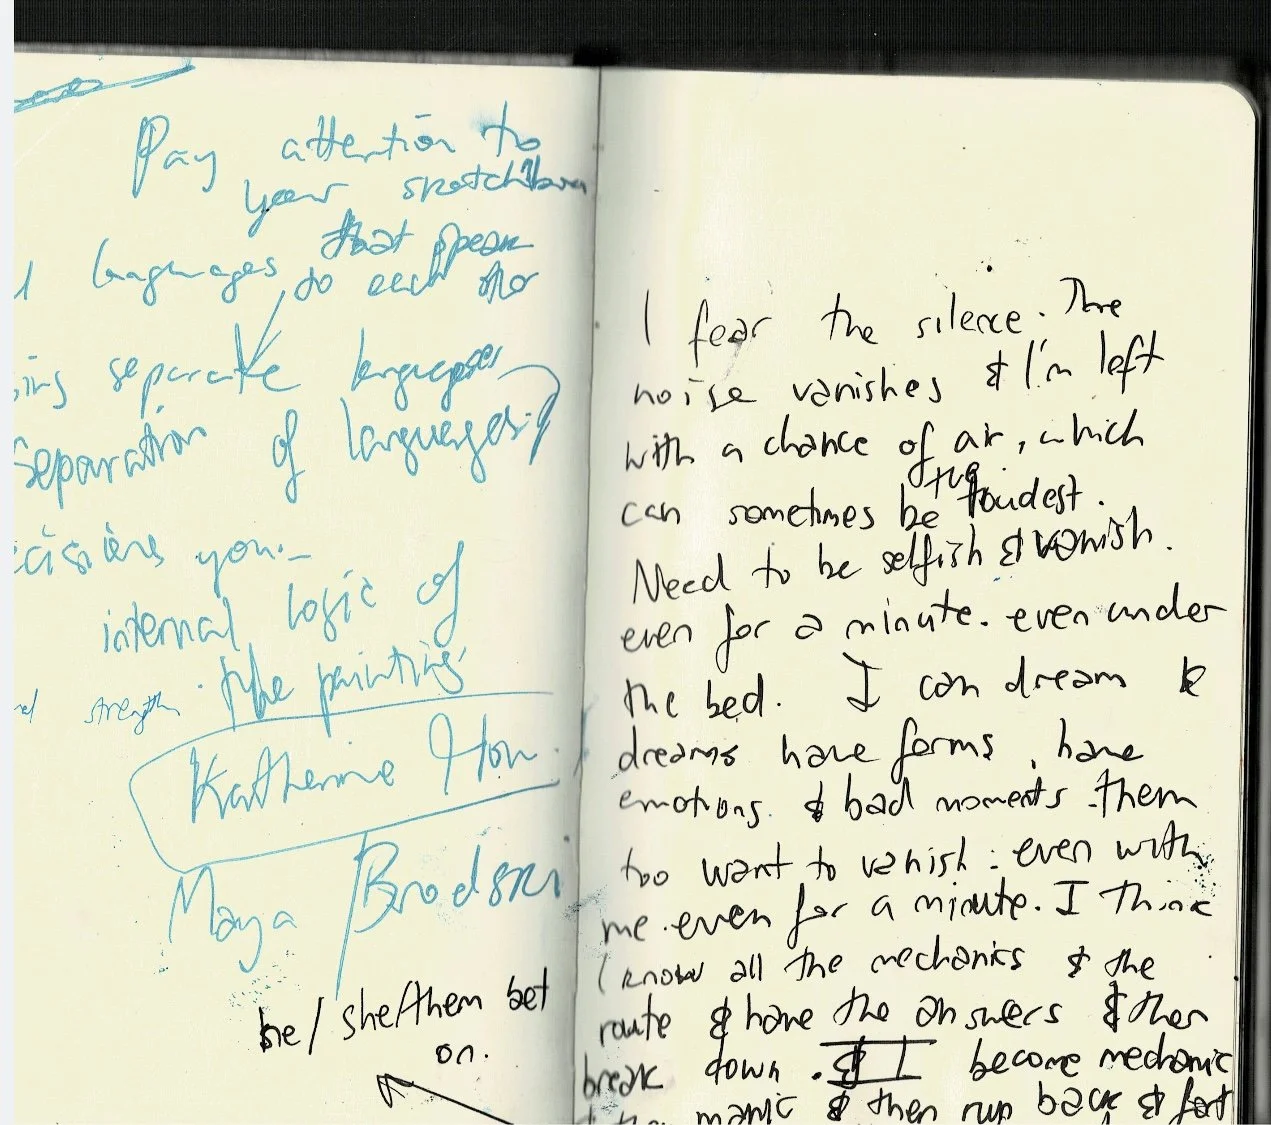 Pay attention to
your
languages that speak
to each other
separate languages
separation of languages?
you
internal logic of
the painting
strength
Katherine
Maya Brodski
he/she/them bet
on.
I fear the silence. The
noise vanishes & I'm left
with a chance of air, which
can sometimes be the loudest.
Need to be selfish & vanish.
even for a minute. even under
the bed. I can dream &
dreams have forms, have
emotions. & bad moments them
too want to vanish. even with
me even for a minute. I think
I know all the mechanics & the
route & have the answers & then
break down. & I become mechanic
manic & then run back & fort